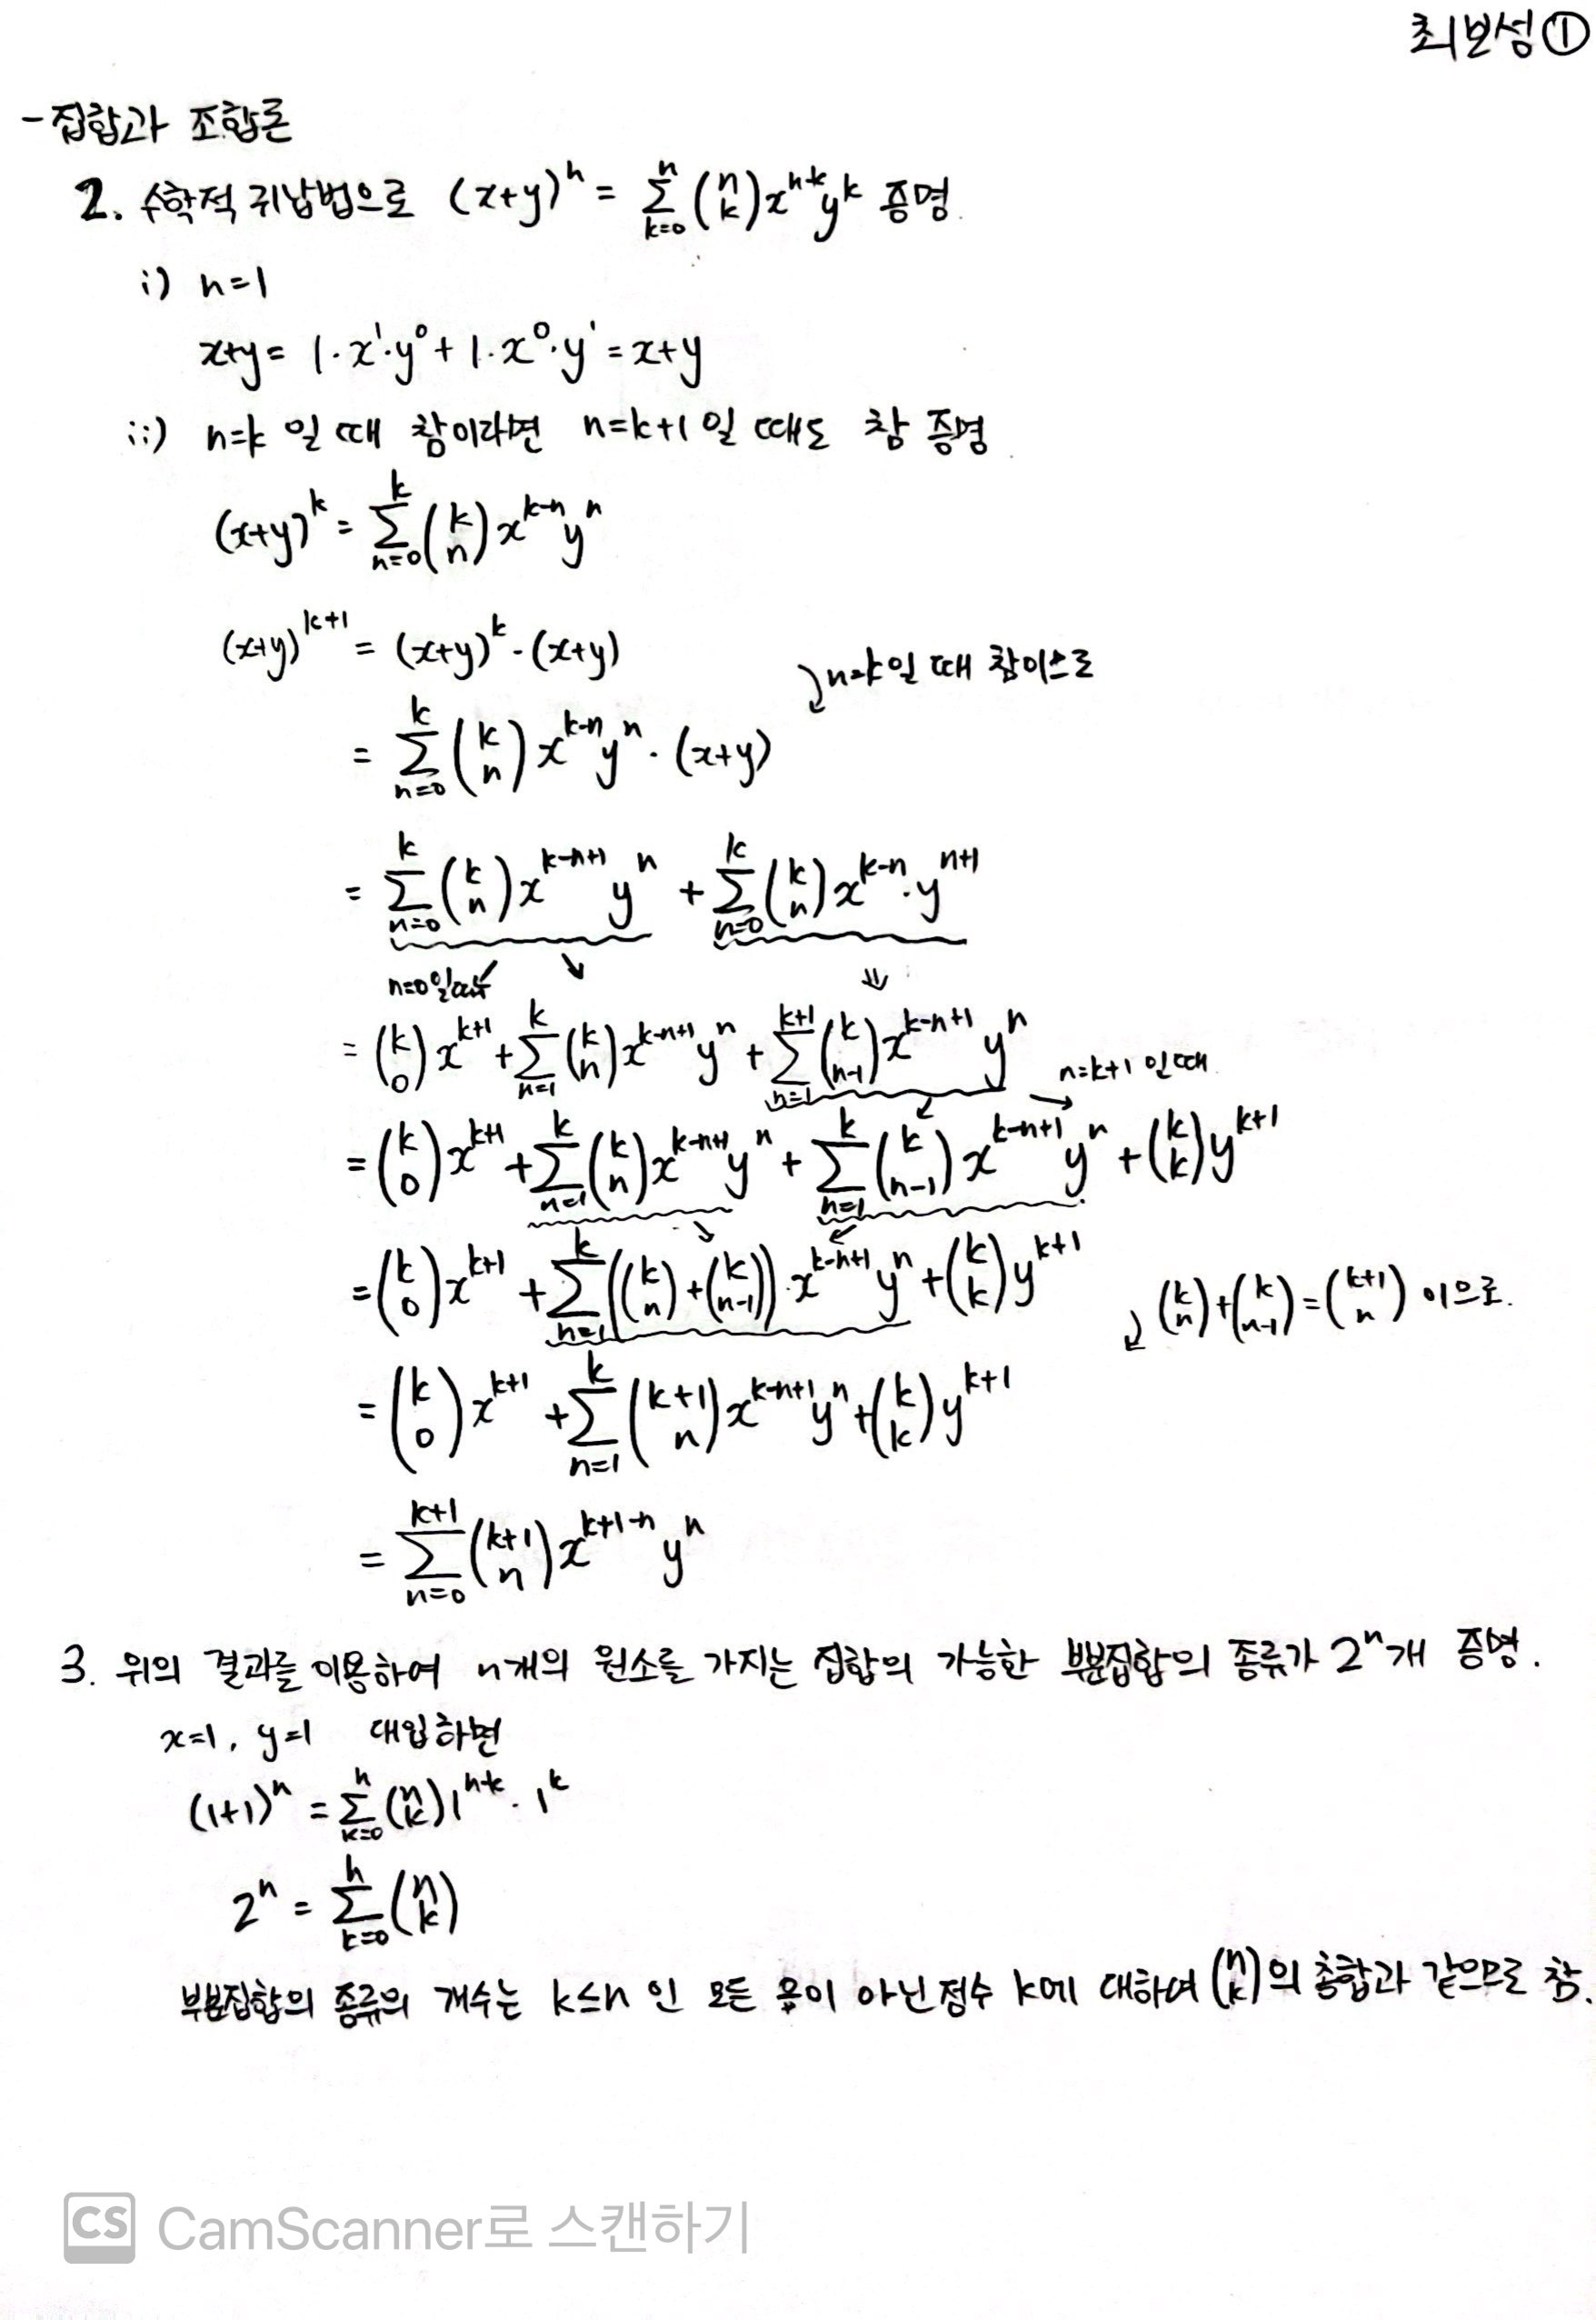 최보성 ①
- 집합과 조합론
2. 수학적 귀납법으로 (x+y)^n = Σ_{k=0}^{n} (n k) x^{n-k} y^k 증명.
i) n=1
x+y = 1·x^1·y^0 + 1·x^0·y^1 = x+y
ii) n=k 일 때 참이라면 n=k+1 일 때도 참 증명.
(x+y)^k = Σ_{n=0}^{k} (k n) x^{k-n} y^n
(x+y)^{k+1} = (x+y)^k · (x+y)
n=k일 때 참이므로
= Σ_{n=0}^{k} (k n) x^{k-n} y^n · (x+y)
= Σ_{n=0}^{k} (k n) x^{k-n+1} y^n + Σ_{n=0}^{k} (k n) x^{k-n} · y^{n+1}
n=0일때
= (k 0) x^{k+1} + Σ_{n=1}^{k} (k n) x^{k-n+1} y^n + Σ_{n=1}^{k+1} (k n-1) x^{k-n+1} y^n
n=k+1 일 때
= (k 0) x^{k+1} + Σ_{n=1}^{k} (k n) x^{k-n+1} y^n + Σ_{n=1}^{k} (k n-1) x^{k-n+1} y^n + (k k) y^{k+1}
= (k 0) x^{k+1} + Σ_{n=1}^{k} ((k n) + (k n-1)) · x^{k-n+1} y^n + (k k) y^{k+1}
(k n) + (k n-1) = (k+1 n) 이므로.
= (k 0) x^{k+1} + Σ_{n=1}^{k} (k+1 n) x^{k-n+1} y^n + (k k) y^{k+1}
= Σ_{n=0}^{k+1} (k+1 n) x^{k+1-n} y^n
3. 위의 결과를 이용하여 n개의 원소를 가지는 집합의 가능한 부분집합의 종류가 2^n개 증명.
x=1, y=1 대입하면
(1+1)^n = Σ_{k=0}^{n} (n k) 1^{n-k} · 1^k
2^n = Σ_{k=0}^{n} (n k)
부분집합의 종류의 개수는 k≤n 인 모든 음이 아닌 정수 k에 대하여 (n k)의 총합과 같으므로 참.
CS CamScanner로 스캔하기